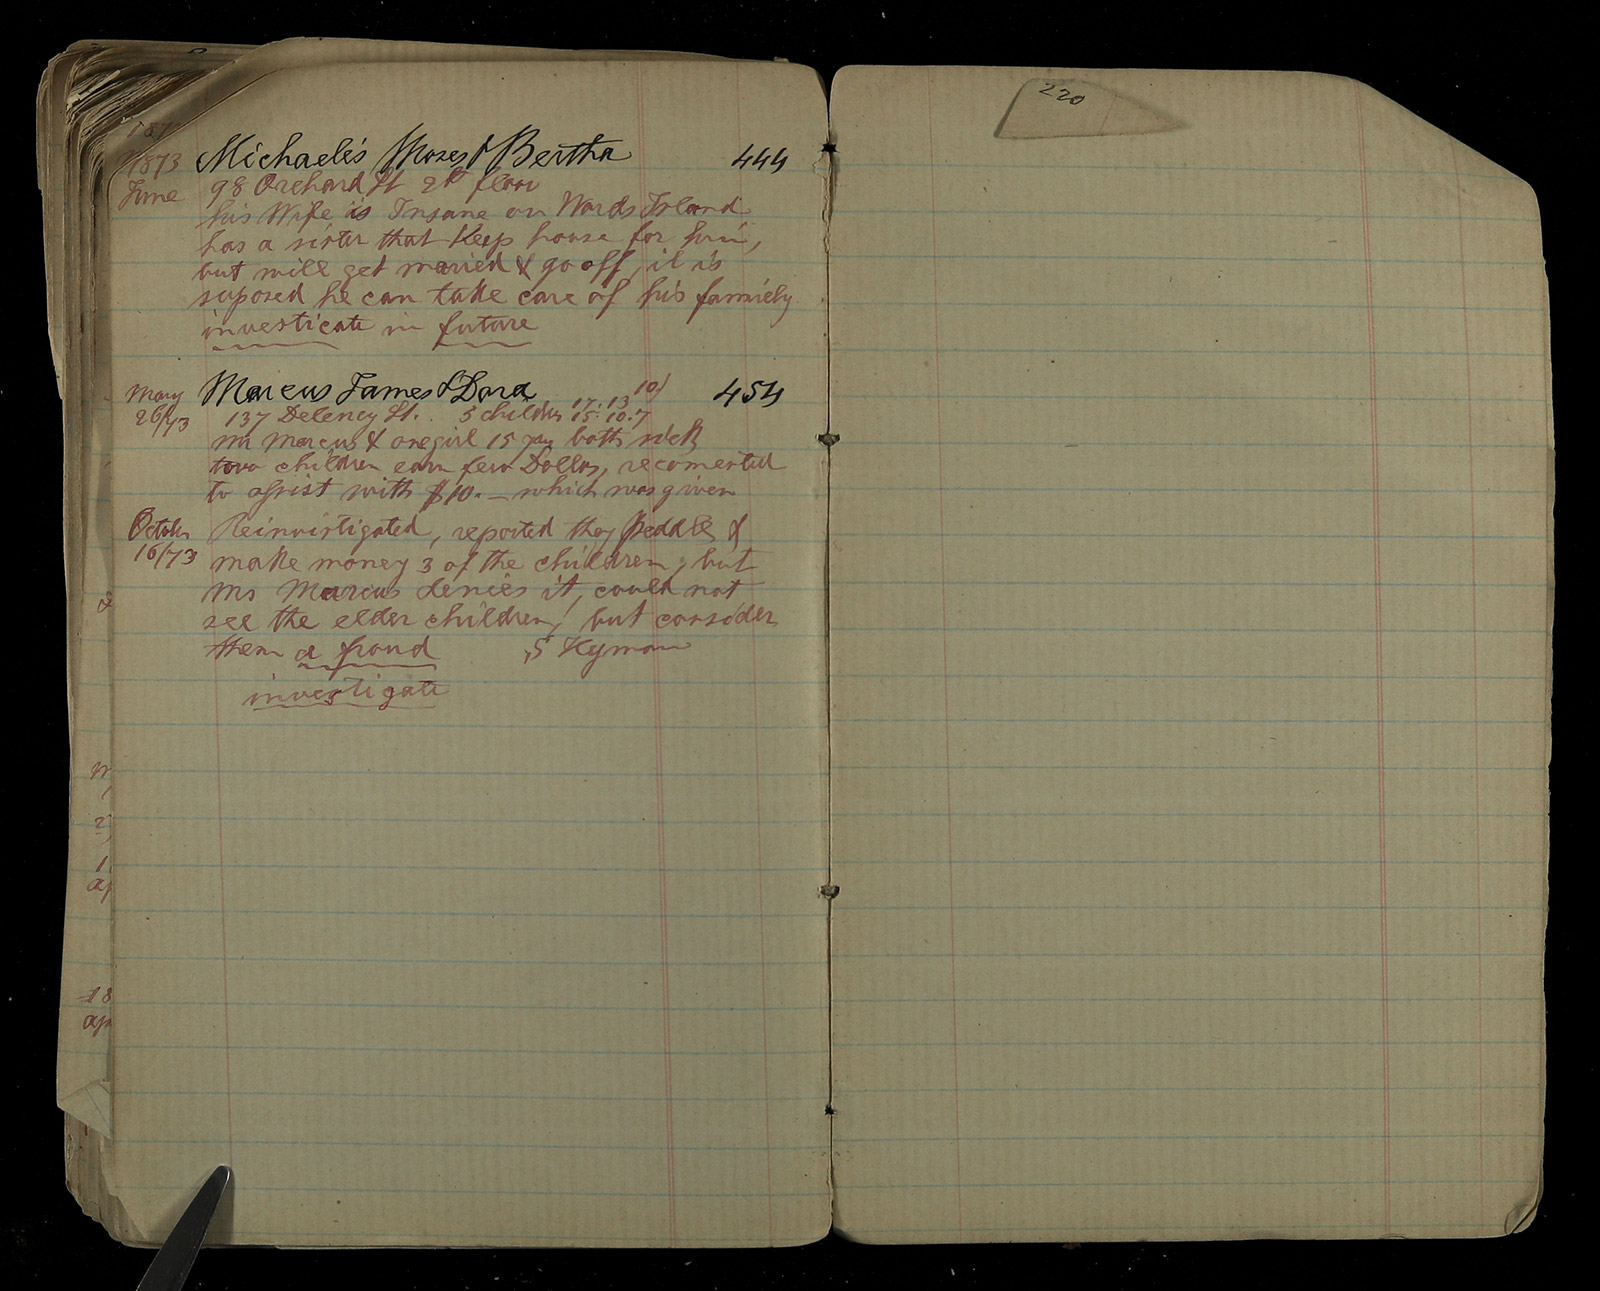 1873 Michaelis Moses & Bertha 444
June 98 Orchard St 2d floor
his Wife is Insane on Wards Island
has a sister that Keep house for him,
but will get maried & go off, it is
suposed he can take care of his famiely
investicate in future
May Marcus James & Dora 454
26/73 137 Delencey St. 5 children 17. 13 15. 10. 7
10/
Mr Marcus & one girl 15 both sick
two children earn few Dollars, recomented
to assist with $10. — which was given
October Reinvistigated, reported they Peddle &
16/73 make money 3 of the children; but
Mrs Marcus denies it, could not
see the elder children, but consider
them a fraud S Hyman
investigate
220